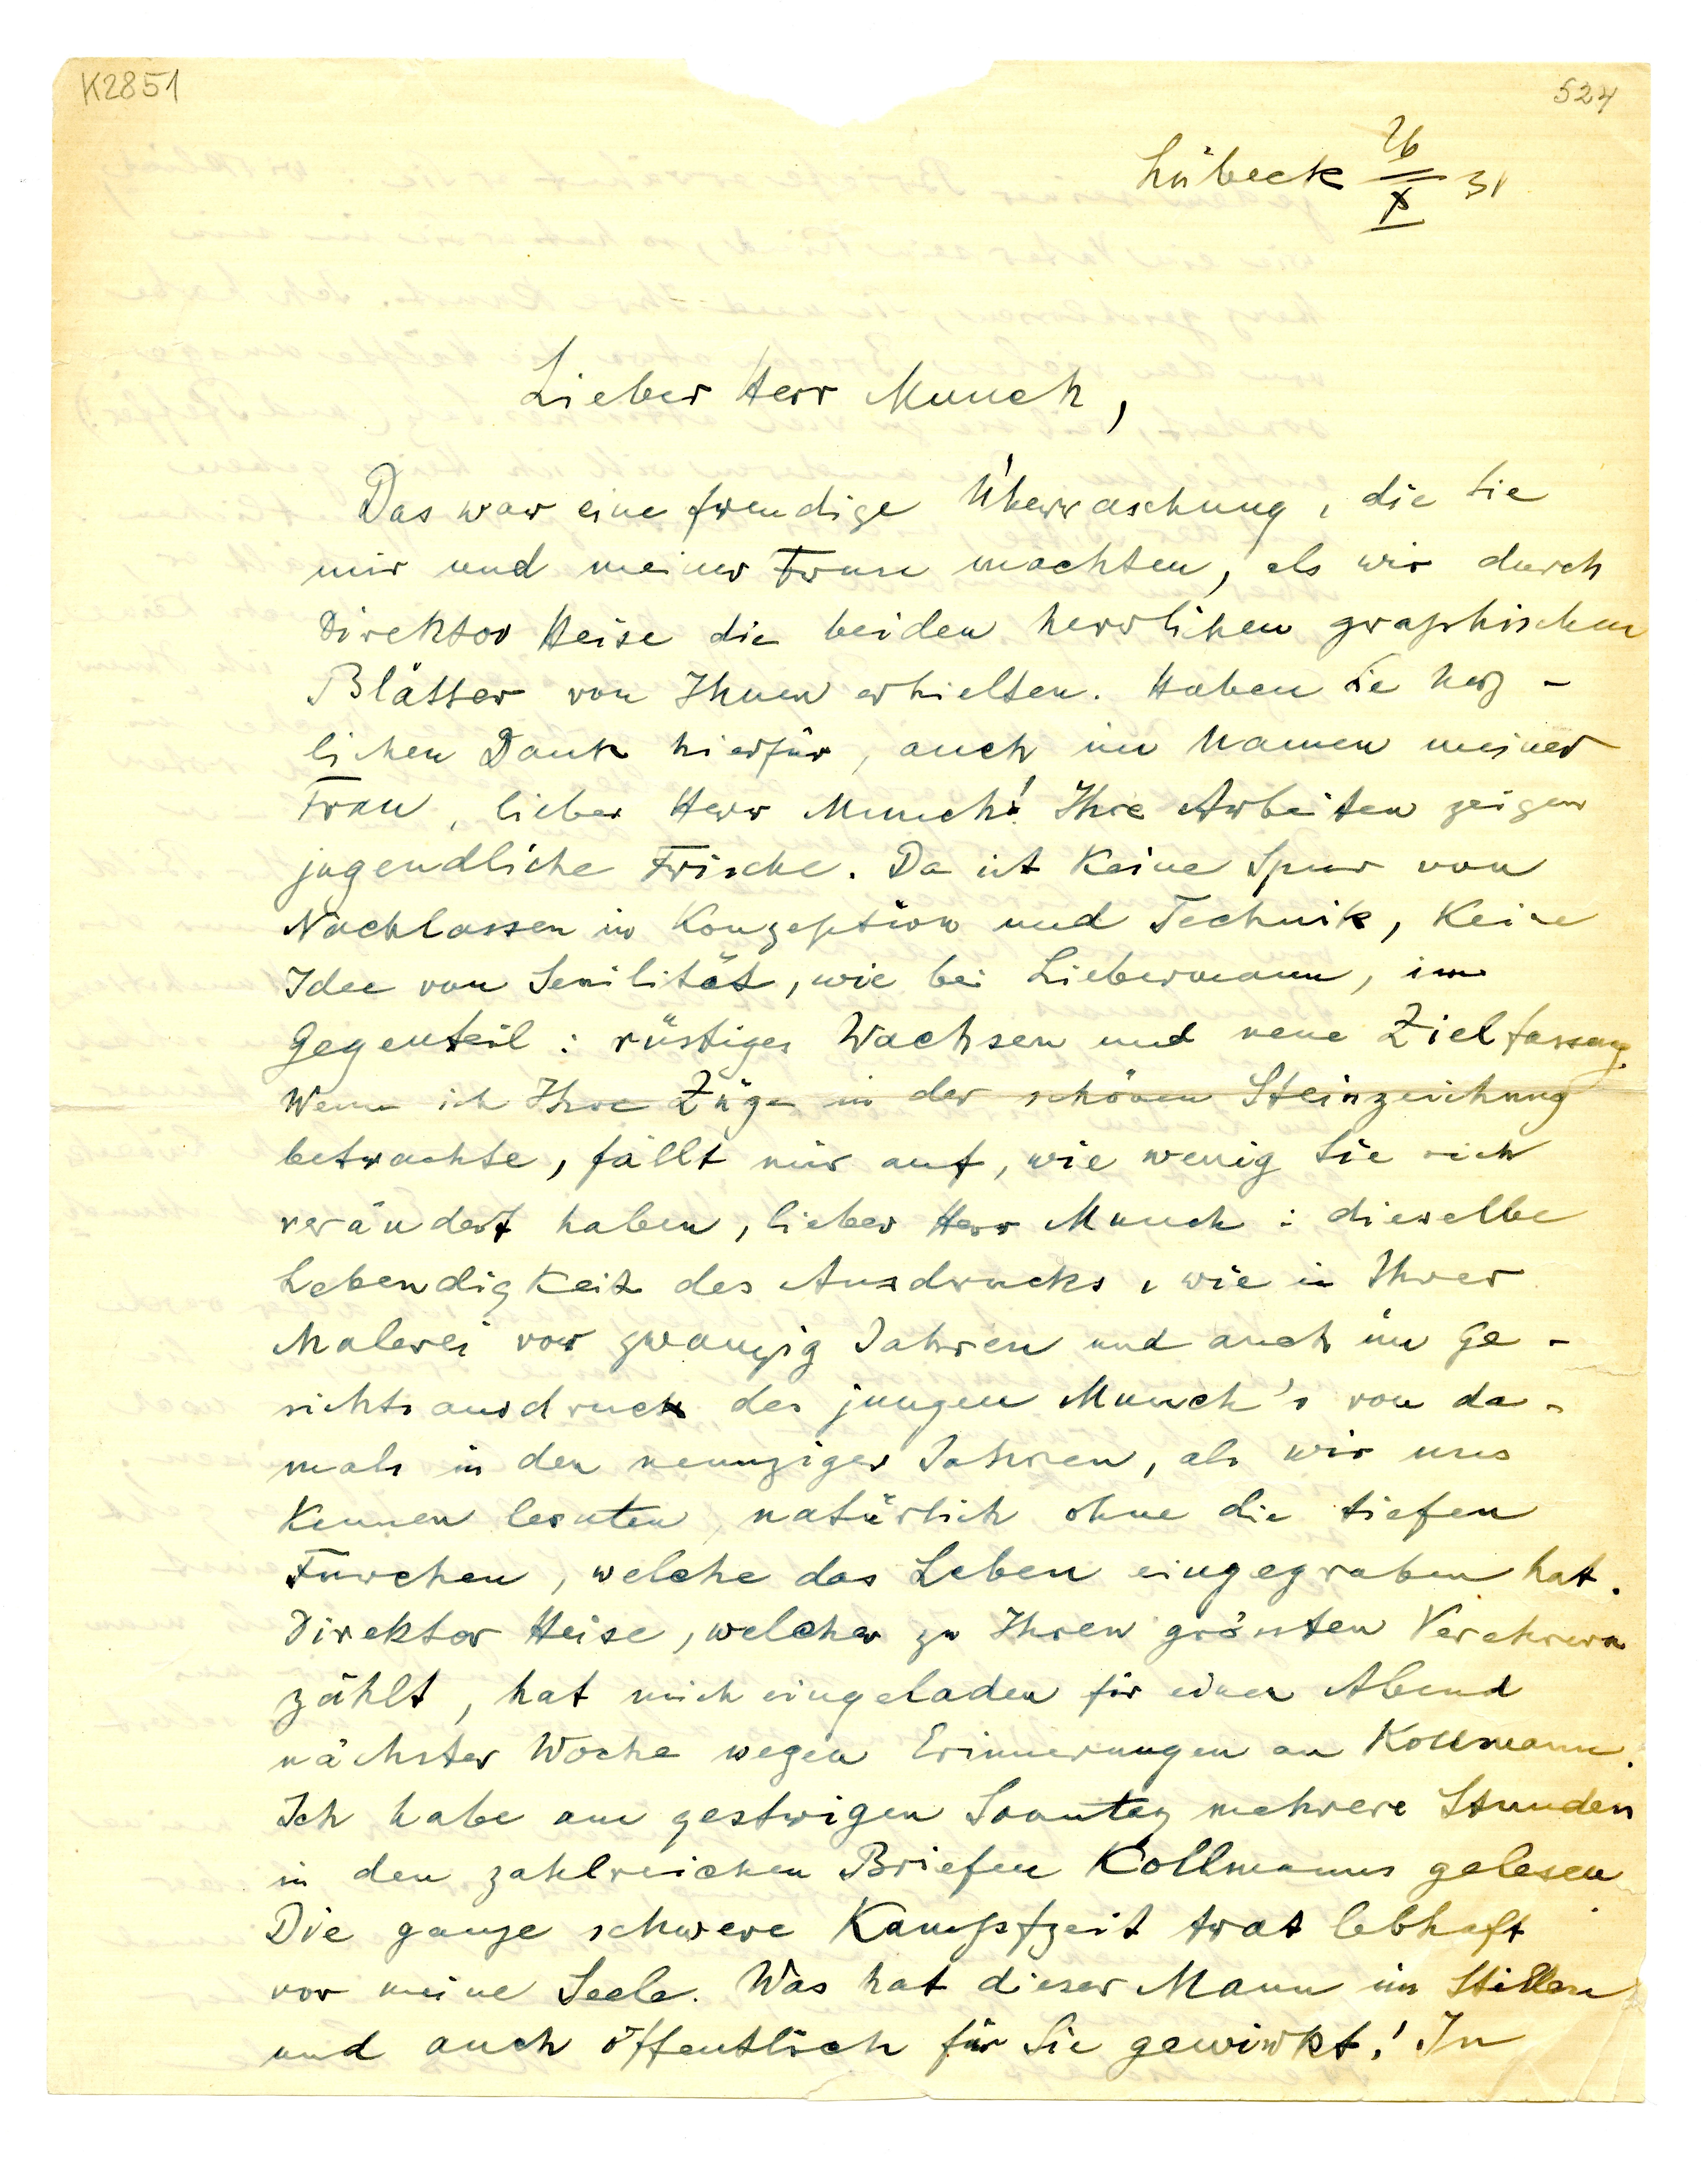 K2851
524
Lübeck 26/X 31
Lieber Herr Munch,
Das war eine freudige Überraschung, die Sie
mir und meiner Frau machten, als wir durch
Direktor Heise die beiden herrlichen graphischen
Blätter von Ihnen erhielten. Haben Sie herz-
lichen Dank hierfür, auch im Namen meiner
Frau, lieber Herr Munch! Ihre Arbeiten zeigen
jugendliche Frische. Da ist keine Spur von
Nachlassen in Konzeption und Technik, keine
Idee von Senilität, wie bei Liebermann, im
Gegenteil: rüstiges Wachsen und neue Zielfassung.
Wenn ich Ihre Züge in der schönen Steinzeichnung
betrachte, fällt mir auf, wie wenig Sie sich
verändert haben, lieber Herr Munch: dieselbe
Lebendigkeit des Ausdrucks, wie in Ihrer
Malerei vor zwanzig Jahren und auch im Ge-
sichtsausdruck des jungen Munch's von da-
mals in den neunziger Jahren, als wir uns
kennen lernten, natürlich ohne die tiefen
Furchen, welche das Leben eingegraben hat.
Direktor Heise, welcher zu Ihren grössten Verehrern
zählt, hat mich eingeladen für einen Abend
nächster Woche wegen Erinnerungen an Kollmann.
Ich habe am gestrigen Sonntag mehrere Stunden
in den zahlreichen Briefen Kollmanns gelesen
Die ganze schwere Kampfzeit trat lebhaft
vor meine Seele. Was hat dieser Mann im Stillen
und auch öffentlich für Sie gewirkt! In